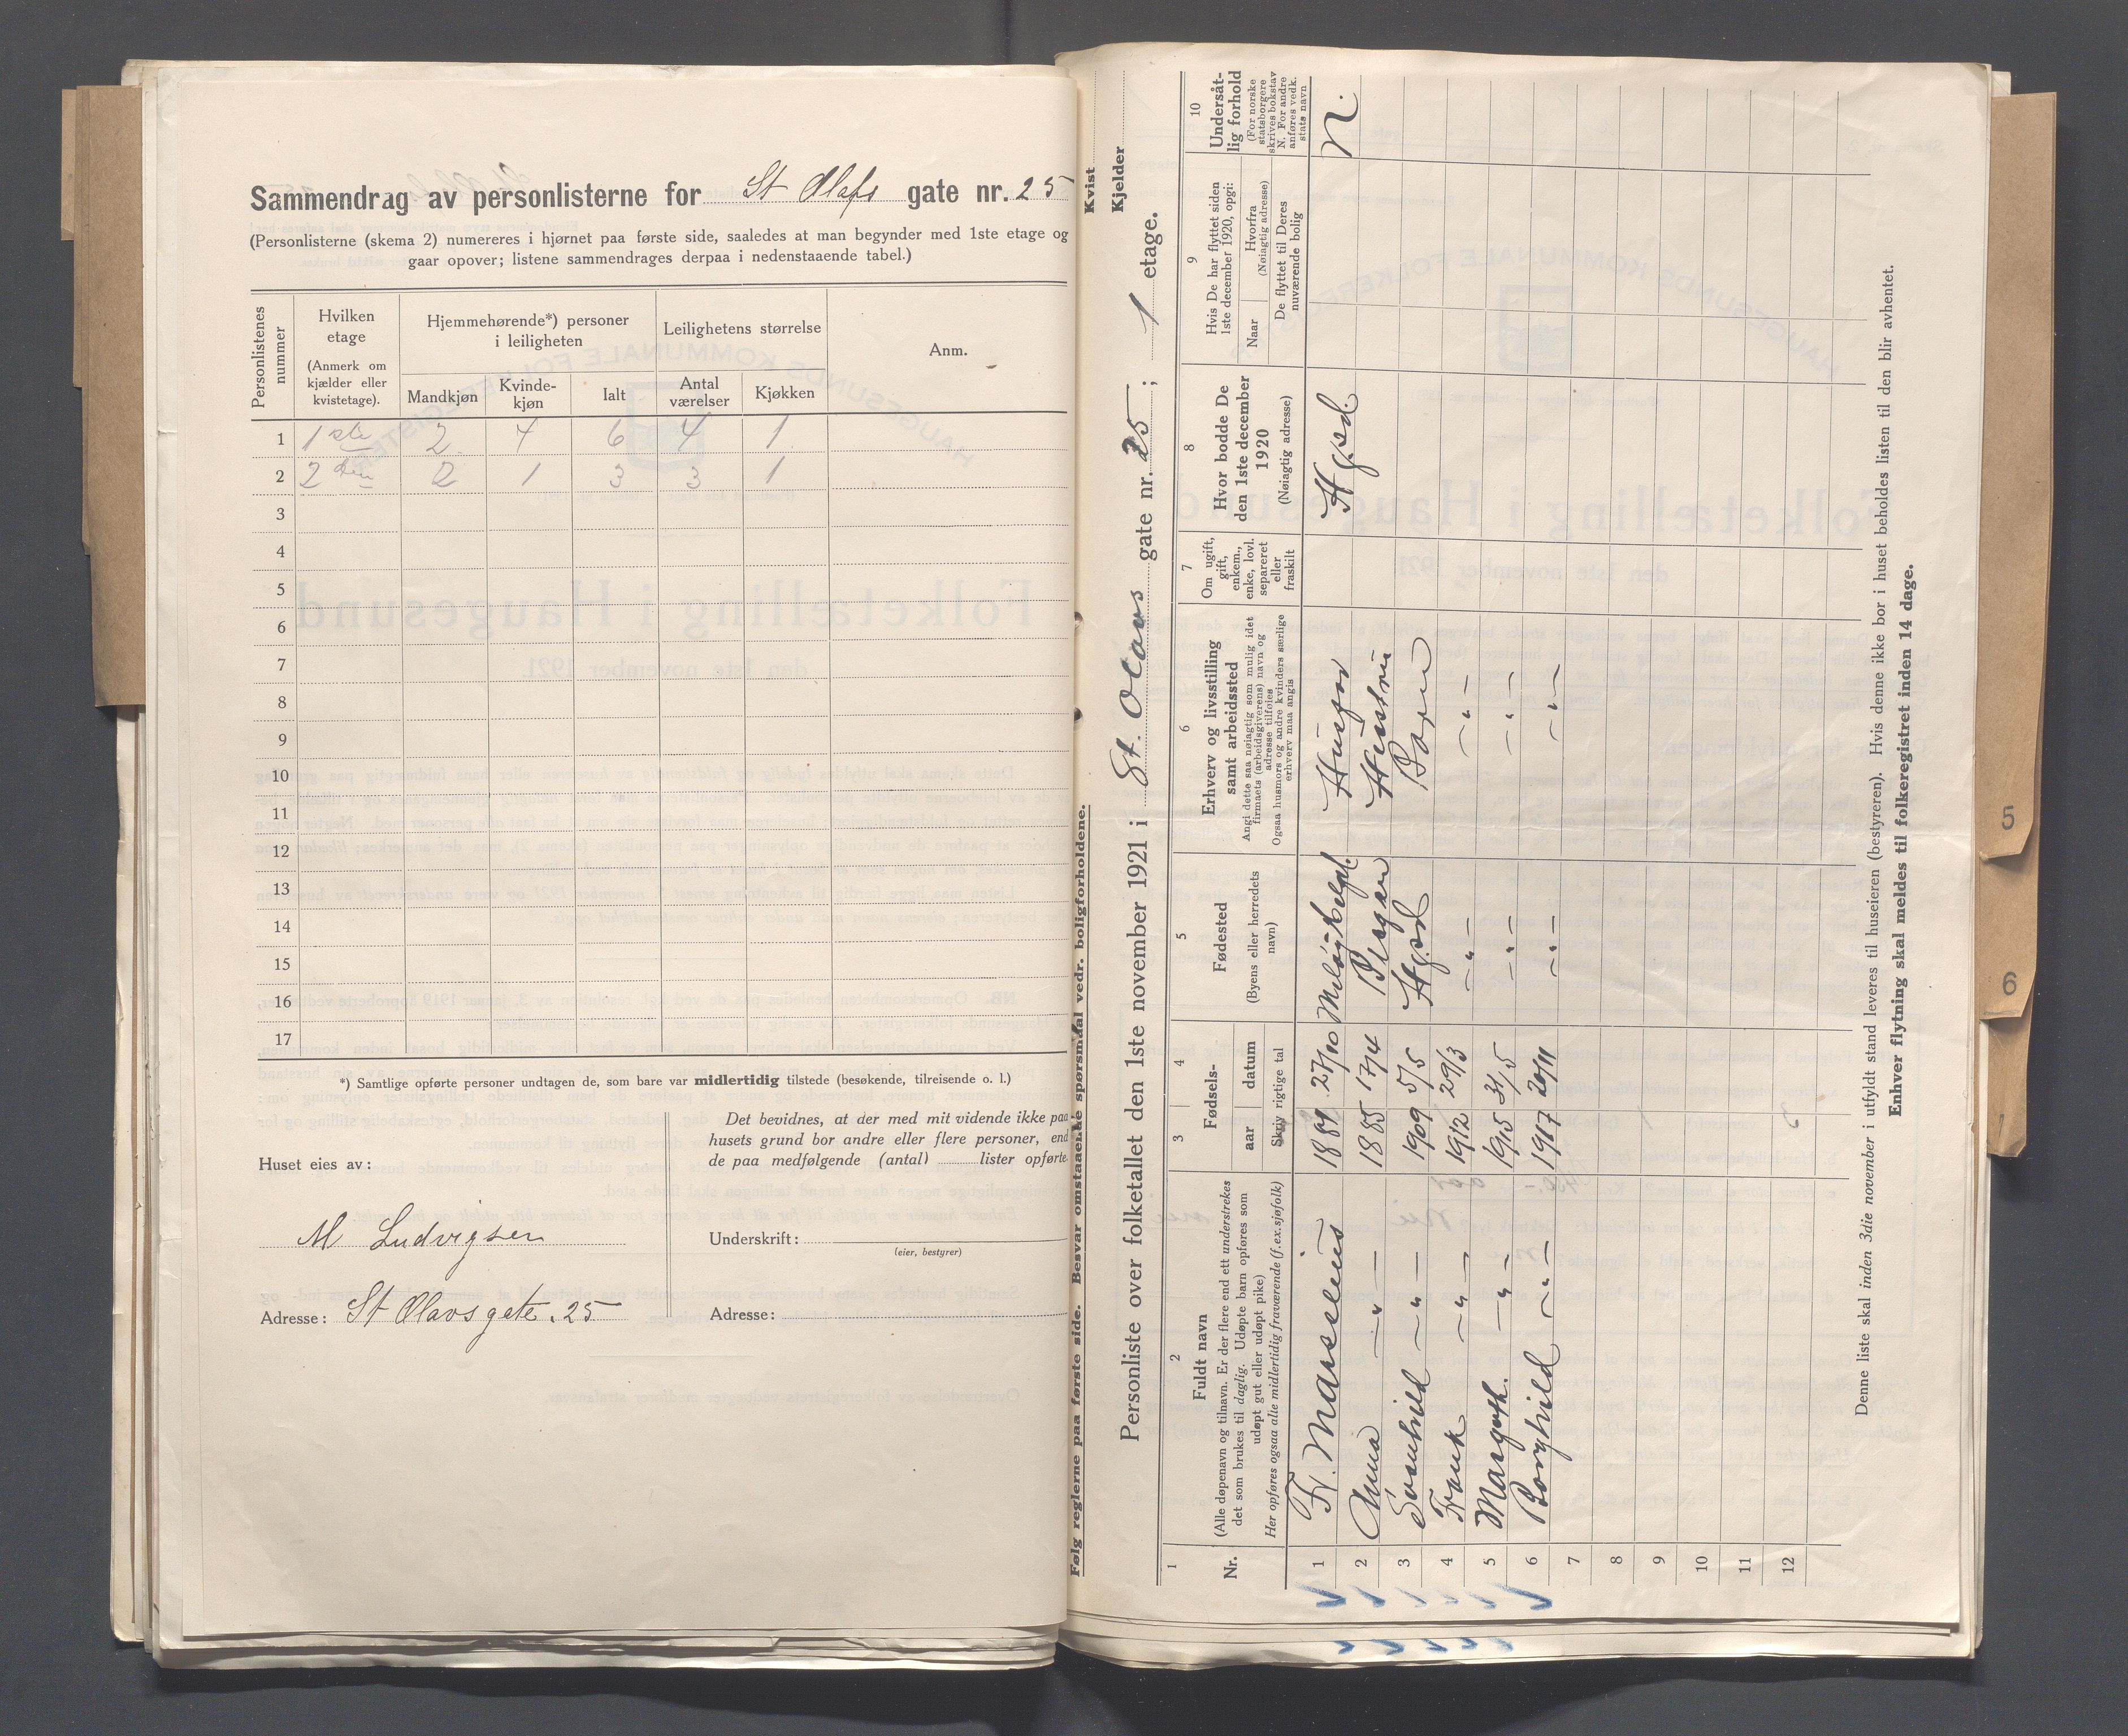 Sammendrag av personlisterne for St Olafs gate nr. 25
(Personlisterne (skema 2) numereres i hjørnet paa første side, saaledes at man begynder med 1ste etage og
gaar opover; listene sammendrages derpaa i nedenstaaende tabel.)
Personlistenes nummer
Hvilken etage
(Anmerk om kjælder eller kvistetage).
Hjemmehørende*) personer i leiligheten
Leilighetens størrelse
Anm.
Mandkjøn
Kvinde-kjøn
Ialt
Antal værelser
Kjøkken
1 1ste 2 4 6 4 1
2 2den 2 1 3 3 1
3
4
5
6
7
8
9
10
11
12
13
14
15
16
17
*) Samtlige opførte personer undtagen de, som bare var midlertidig tilstede (besøkende, tilreisende o. l.)
Huset eies av:
M Ludvigsen
Adresse: St Olavsgate. 25
Det bevidnes, at der med mit vidende ikke paa
husets grund bor andre eller flere personer, end
de paa medfølgende (antal) lister opførte
Underskrift:
(eier, bestyrer)
Adresse:
Følg reglerne paa første side. Besvar omstaaende spørsmaal vedr. boligforholdene.
Kvist
Kjelder
Personliste over folketallet den 1ste november 1921 i St. Olavs gate nr. 25 ; 1 etage.
1
Nr.
2
Fuldt navn
(Alle døpenavn og tilnavn. Er der flere end ett understrekes
det som brukes til daglig. Udøpte barn opføres som
udøpt gut eller udøpt pike)
Her opføres ogsaa alle midlertidig fraværende (f.ex.sjøfolk)
3
4
Fødsels-
aar
datum
Skriv rigtige tal
5
Fødested
(Byens eller herredets navn)
6
Erhverv og livsstilling
samt arbeidssted
Angi dette saa nøiagtig som mulig idet
firmaets (arbeidsgiverens) navn og
adresse tilføies
Ogsaa husmors og andre kvinders særlige
erhverv maa angis
7
Om ugift, gift, enkem., enke, lovl. separeret eller fraskilt
8
Hvor bodde De
den 1ste december
1920
(Nøiagtig adresse)
9
Hvis De har flyttet siden
1ste december 1920, opgi:
Naar
Hvorfra
(Nøiagtig adresse)
De flyttet til Deres
nuværende bolig
10
Undersåt-
lig forhold
(For norske
statsborgere
skrives bokstav
N. For andre
anføres vedk.
stats navn
1 Fr. Marselius 27/10 Husfar Hgsd. N.
2 Anna —"— 1885 17/4 Hustru
3 Svanhild —"— 1909 5/5 Hgsd Barn
4 Frank —"— 1912 29/3 —"— —"—
5 Margoth. —"— 1915 31/5 —"— —"—
6 Borghild —"— 1917 —"— —"—
7
8
9
10
11
12
Denne liste skal inden 3die november i utfyldt stand leveres til huseieren (bestyreren). Hvis denne ikke bor i huset beholdes listen til den blir avhentet.
Enhver flytning skal meldes til folkeregistret inden 14 dage.
5
6